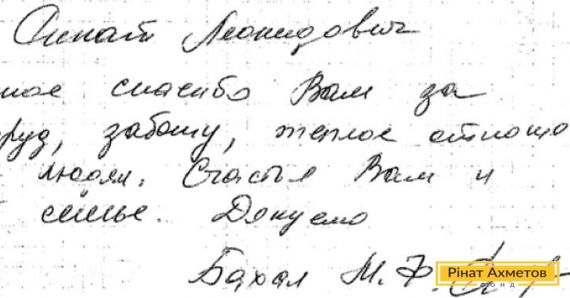 Ринат Леонидович
ное спасибо Вам за
руд, заботу, теплое отноше
людям. Счастья Вам и
семье. Дякуємо
Бахал М. Ф.
Рінат Ахметов
Фонд